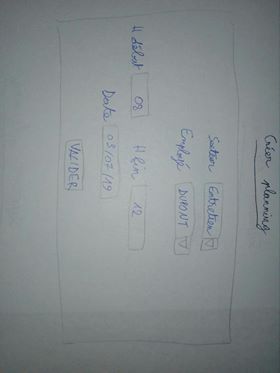 Créer planning
Section Entretien
Employé DUPONT
H début 08 H fin 12
Date 03/07/19
VALIDER